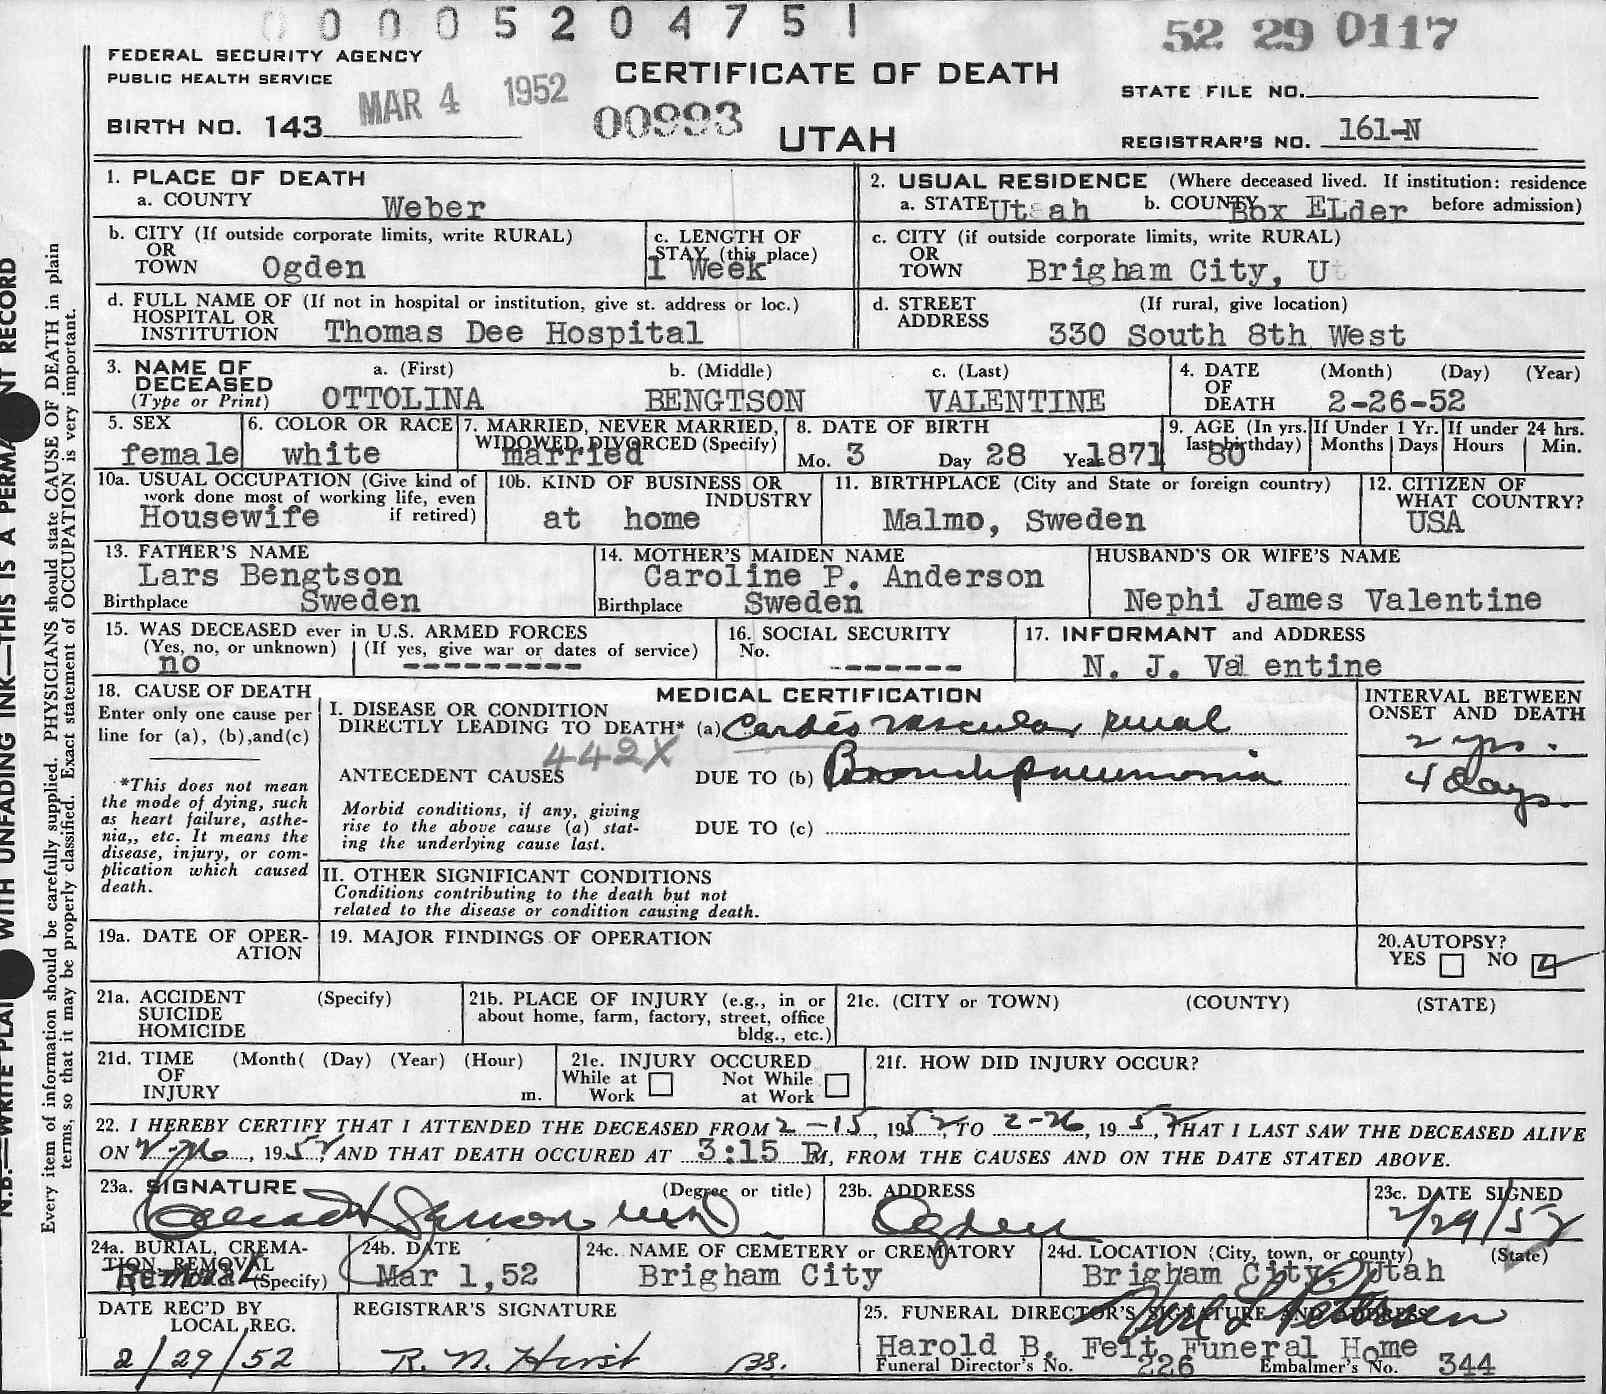 0 0 0 0 5 2 0 4 7 5 1
52 29 0117
FEDERAL SECURITY AGENCY
PUBLIC HEALTH SERVICE
MAR 4 1952
CERTIFICATE OF DEATH
STATE FILE NO.
BIRTH NO. 143
00993
UTAH
REGISTRAR'S NO. 161-N
1. PLACE OF DEATH
a. COUNTY Weber
2. USUAL RESIDENCE (Where deceased lived. If institution: residence before admission)
a. STATE Utah b. COUNTY Box ELder
b. CITY (If outside corporate limits, write RURAL)
OR
TOWN Ogden
c. LENGTH OF
STAY (this place)
1 Week
c. CITY (if outside corporate limits, write RURAL)
OR
TOWN Brigham City, Ut
d. FULL NAME OF (If not in hospital or institution, give st. address or loc.)
HOSPITAL OR
INSTITUTION Thomas Dee Hospital
d. STREET (If rural, give location)
ADDRESS 330 South 8th West
3. NAME OF
DECEASED
(Type or Print)
a. (First) b. (Middle) c. (Last)
OTTOLINA BENGTSON VALENTINE
4. DATE OF DEATH (Month) (Day) (Year)
2-26-52
5. SEX
female
6. COLOR OR RACE
white
7. MARRIED, NEVER MARRIED,
WIDOWED, DIVORCED (Specify)
married
8. DATE OF BIRTH
Mo. 3 Day 28 Year 1871
9. AGE (In yrs.
last birthday)
80
If Under 1 Yr.
Months Days
If under 24 hrs.
Hours Min.
10a. USUAL OCCUPATION (Give kind of
work done most of working life, even
if retired)
Housewife
10b. KIND OF BUSINESS OR
INDUSTRY
at home
11. BIRTHPLACE (City and State or foreign country)
Malmo, Sweden
12. CITIZEN OF
WHAT COUNTRY?
USA
13. FATHER'S NAME
Lars Bengtson
Birthplace Sweden
14. MOTHER'S MAIDEN NAME
Caroline P. Anderson
Birthplace Sweden
HUSBAND'S OR WIFE'S NAME
Nephi James Valentine
15. WAS DECEASED ever in U.S. ARMED FORCES
(Yes, no, or unknown) (If yes, give war or dates of service)
no ---------
16. SOCIAL SECURITY
No. -------
17. INFORMANT and ADDRESS
N. J. Val entine
18. CAUSE OF DEATH
Enter only one cause per
line for (a), (b),and(c)
*This does not mean
the mode of dying, such
as heart failure, asthe-
nia,, etc. It means the
disease, injury, or com-
plication which caused
death.
MEDICAL CERTIFICATION
I. DISEASE OR CONDITION
DIRECTLY LEADING TO DEATH* (a) Cardio vascular renal
442X
ANTECEDENT CAUSES DUE TO (b) Bronchopneumonia
Morbid conditions, if any, giving
rise to the above cause (a) stat-
ing the underlying cause last.
DUE TO (c)
INTERVAL BETWEEN
ONSET AND DEATH
2 yrs.
4 days
II. OTHER SIGNIFICANT CONDITIONS
Conditions contributing to the death but not
related to the disease or condition causing death.
19a. DATE OF OPER-
ATION
19. MAJOR FINDINGS OF OPERATION
20.AUTOPSY?
YES NO
21a. ACCIDENT (Specify)
SUICIDE
HOMICIDE
21b. PLACE OF INJURY (e.g., in or
about home, farm, factory, street, office
bldg., etc.)
21c. (CITY or TOWN) (COUNTY) (STATE)
21d. TIME (Month( (Day) (Year) (Hour)
OF
INJURY m.
21e. INJURY OCCURED
While at Work
Not While at Work
21f. HOW DID INJURY OCCUR?
22. I HEREBY CERTIFY THAT I ATTENDED THE DECEASED FROM 2-15, 1952, TO 2-26, 1952, THAT I LAST SAW THE DECEASED ALIVE
ON 2-26, 1952, AND THAT DEATH OCCURED AT 3:15 P.M, FROM THE CAUSES AND ON THE DATE STATED ABOVE.
23a. SIGNATURE (Degree or title)
23b. ADDRESS
Ogden
23c. DATE SIGNED
2/29/52
24a. BURIAL, CREMA-
TION, REMOVAL
(Specify)
Removal
24b. DATE
Mar 1,52
24c. NAME OF CEMETERY or CREMATORY
Brigham City
24d. LOCATION (City, town, or county) (State)
Brigham City, Utah
DATE REC'D BY
LOCAL REG.
2/29/52
REGISTRAR'S SIGNATURE
R. N. Hirst
25. FUNERAL DIRECTOR'S SIGNATURE AND ADDRESS
Harold B. Felt Funeral Home
Funeral Director's No. 226 Embalmer's No. 344
WITH UNFADING INK—THIS IS A
RECORD
N.B.—WRITE
Every item of information should be carefully supplied. PHYSICIANS should state CAUSE OF DEATH in plain
terms, so that it may be properly classified. Exact statement of OCCUPATION is very important.